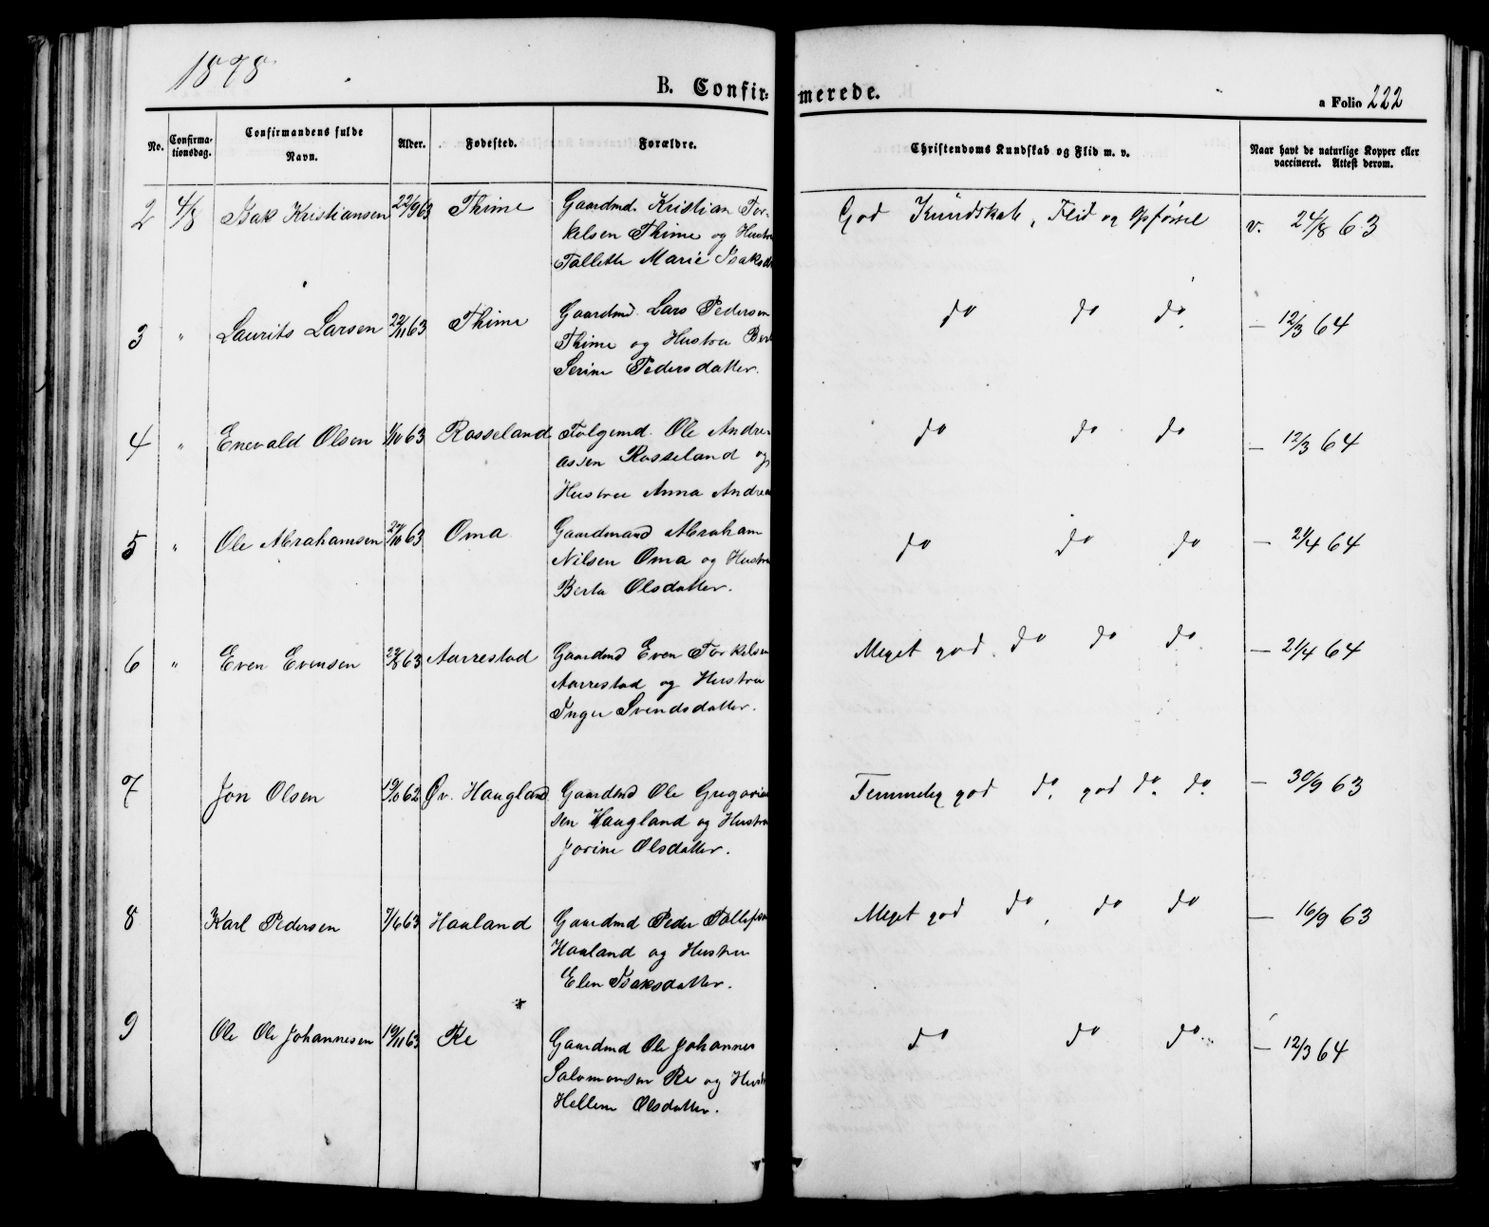 1878
B. Confirmerede.
a Folio 222
No.
Confirmationsdag.
Confirmandens fulde Navn.
Alder.
Fødested.
Forældre.
Christendoms Kundskab og Flid m. v.
Naar havt de naturlige Kopper eller vaccineret. Attest derom.
2 4/8 Isak Kristiansen 22/9 63 Thime Gaardmd. Kristian Tor- God Kundskab, Flid og Opførsel v. 24/8 63
kelsen Thime og Hustru
Tallette Marie Isaksd
3 " Laurits Larsen 22/11 63 Thime Gaardmd. Lars Pedersen do do do. — 12/3 64
Thime og Hustru
Serine Pedersdatter.
4 " Enevald Olsen 1/10 63 Rosseland Følgemd. Ole Andre- do do do — 12/3 64
assen Rosseland og
Hustru Anna
5 " Ole Abrahamsen 63 Oma Gaardmand Abraham do do do — 21/4 64
Nilsen Oma og Hustru
Berta Olsdatter.
6 " Even Evensen 63 Aarrestad Gaardmd Even Torkelsen Meget god do do do. — 21/4 64
Aarrestad og Hustru
Inger Svendsdatter.
7 Jon Olsen 62 Øv. Haugland Gaardmd Ole Gregorius Temmelig god do. god do. do — 30/9 63
sen Haugland og Hustru
Jorine Olsdatter.
8 Karl Pedersen 7/6 63 Haaland Gaardmd Peder Tollefsen Meget god do, do do — 16/9 63
Haaland og Hustru
Elen Isaksdatter.
9 Ole Ole Johannesen 19/11 63 Re Gaardmd Ole Johannes do do do — 12/3 64
Salomonsen Re og
Hellene Olsdatter.